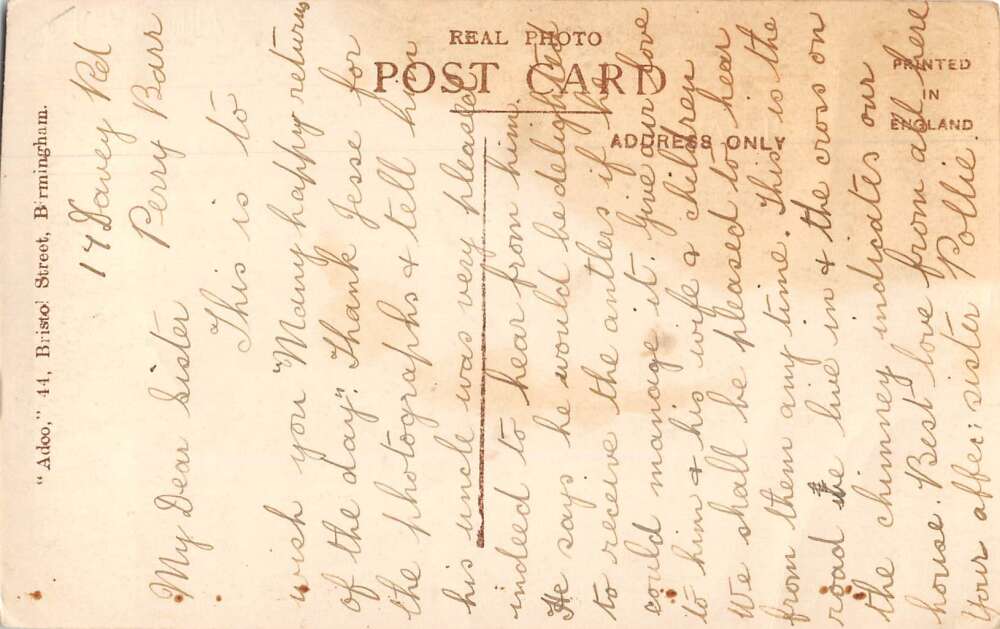 REAL PHOTO
POST CARD
ADDRESS ONLY
PRINTED
IN
ENGLAND
"Adoo," 44, Bristol Street, Birmingham.
17 Davey Rd
Perry Barr
My Dear Sister
This is to
wish you "Many happy returns
of the day". Thank Jesse for
the photographs & tell him
his uncle was very pleased
indeed to hear from him.
He says he would be delighted
to receive the antlers if he
could manage it. Give our love
to him & his wife & children
We shall be pleased to hear
from them any time. This is the
road we live in & the cross on
the chimney indicates our
house. Best love from all here
Your affec: sister Pollie.